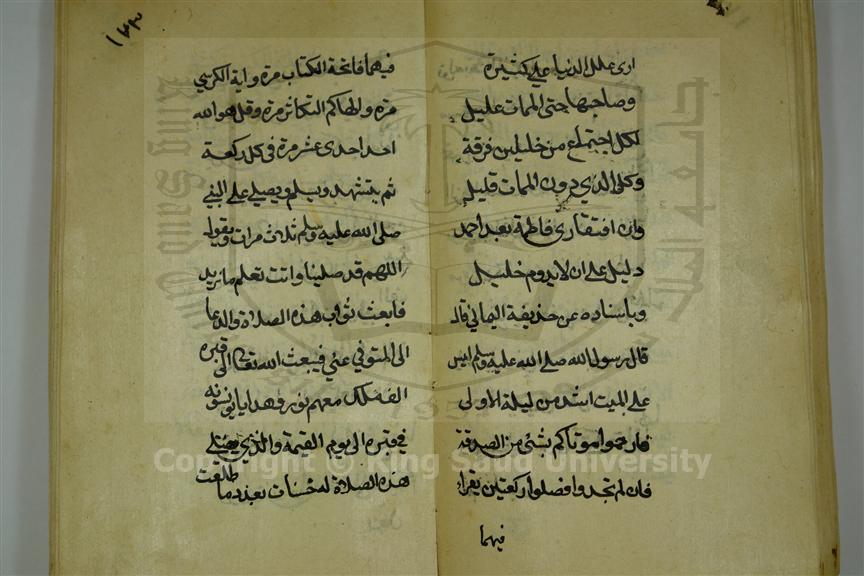 ارى علل الدنيا علي كثيرة
وصاحبها حتى الممات عليل
لكل اجتماع من خليلين فرقة
وكل الذي دون الممات قليل
وان افتقاري فاطمة بعد احمد
دليل على ان لا يدوم خليل
وباسناده عن حذيفة اليماني قال
قال رسول الله صلى الله عليه وسلم ليس
على الميت اشد من ليلة الاولى
فارحموا موتاكم بشئ من الصدقة
فان لم تجدوا فصلوا ركعتين يقراء
فيهما
١٣٣
فيهما فاتحة الكتاب مرة واية الكرسي
مرة والهاكم التكاثر مرة وقل هو الله
احد احدى عشر مرة في كل ركعة
ثم يتشهد ويسلم ويصلي على النبي
صلى الله عليه وسلم ثلاث مرات ويقول
اللهم قد صلينا وانت تعلم ما نريد
فابعث ثواب هذه الصلاة والدعا
الى المتوفي عني فيبعث الله تعالى الى قبره
الف ملك معهم نور وهدايا يونسونه
في قبره الى يوم القيمة والذي يصلي
هذه الصلاة له حسنات بعدد ما طلعت
Copyright © King Saud University
King Saud University
جامعة الملك سعود